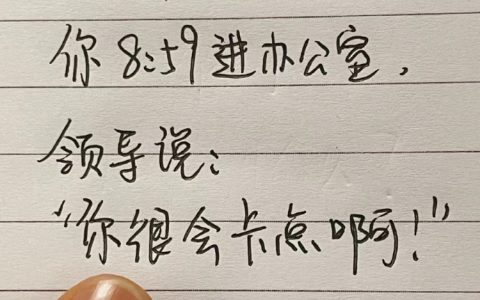 你8:59进办公室,
领导说:
“你很会卡点啊!”